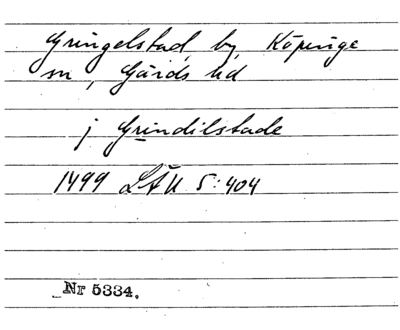 Gringelstad, by, Köpinge
sn, Gärds hd
j Grindilstade
1499 LÄU S: 404
Nr 5334.